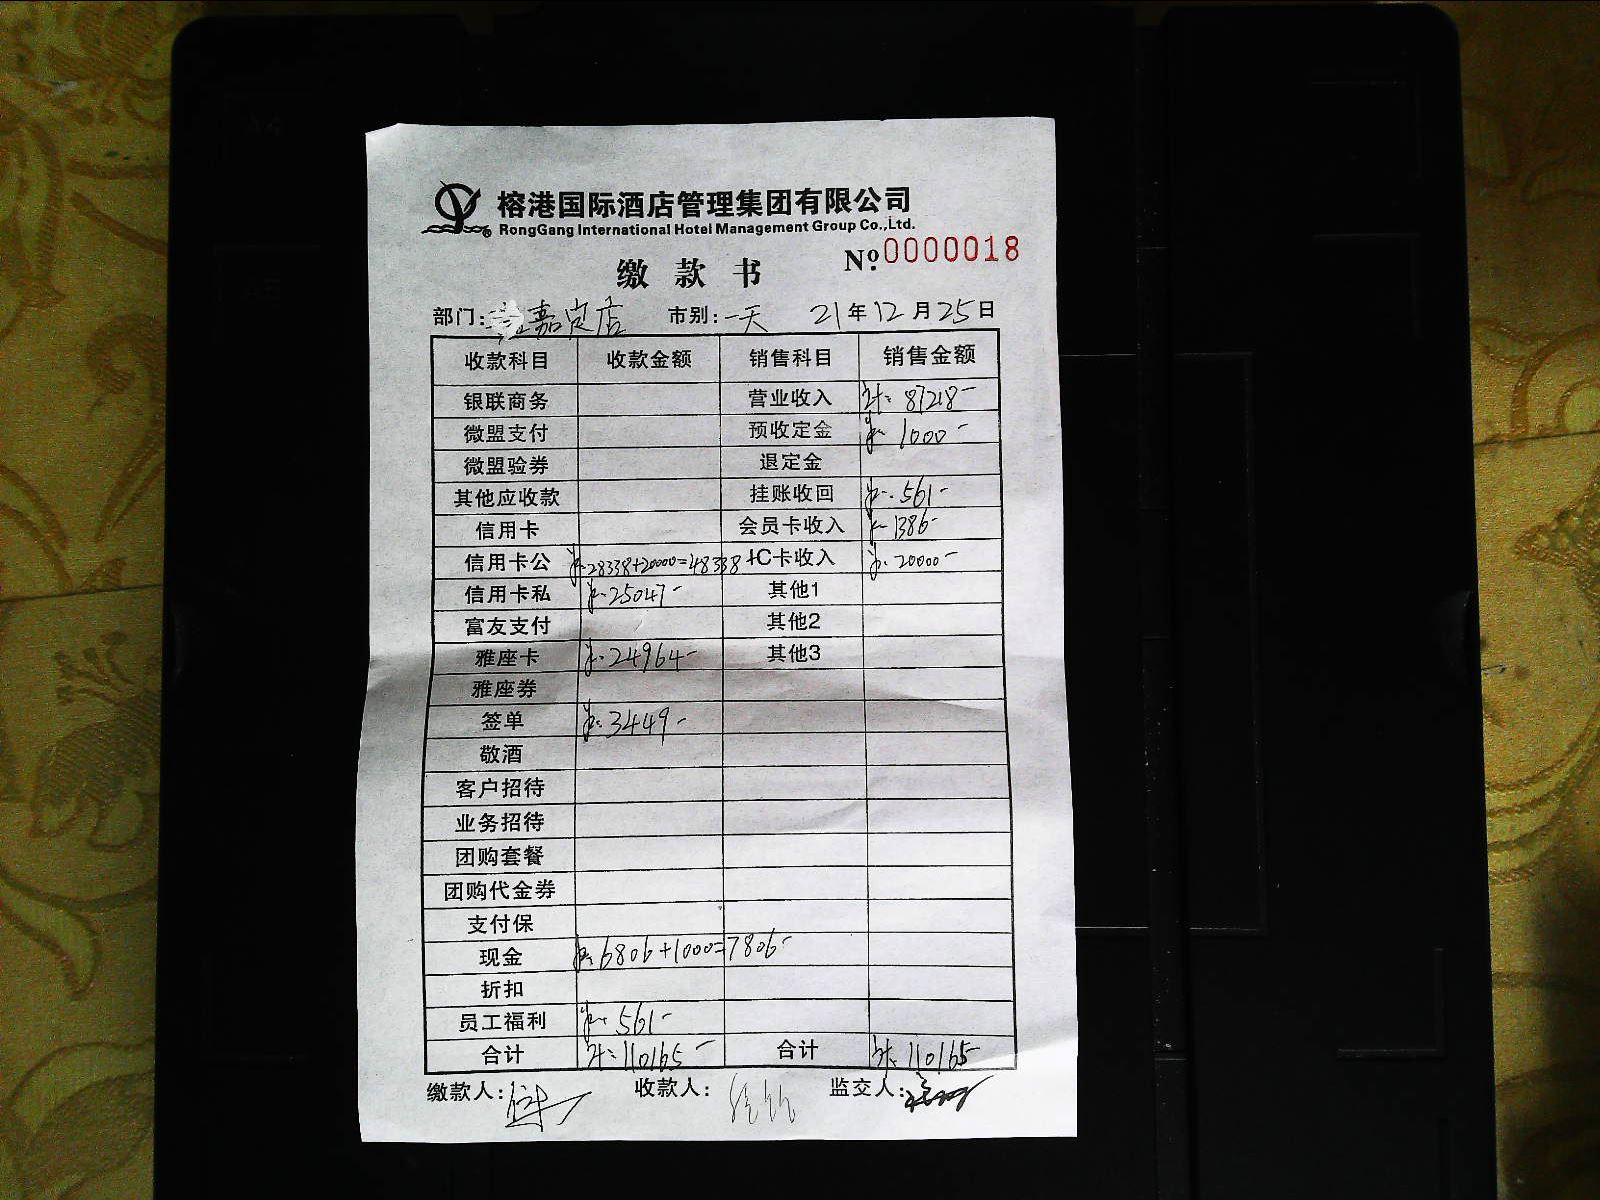 榕港国际酒店管理集团有限公司
RongGang International Hotel Management Group Co.,Ltd.
№ 0000018
缴款书
部门: 嘉定店 市别: 一天 21年12月25日
收款科目 收款金额 销售科目 销售金额
银联商务 营业收入 计: 87218-
微盟支付 预收定金 1000-
微盟验券 退定金
其他应收款 挂账收回 561-
信用卡 会员卡收入 1386-
信用卡公 28338+20000=48338 IC卡收入 20000-
信用卡私 25047- 其他1
富友支付 其他2
雅座卡 24964- 其他3
雅座券
签单 3449-
敬酒
客户招待
业务招待
团购套餐
团购代金券
支付保
现金 6806+1000=7806-
折扣
员工福利 561-
合计 计: 110165- 合计 计: 110165-
缴款人: 收款人: 监交人: